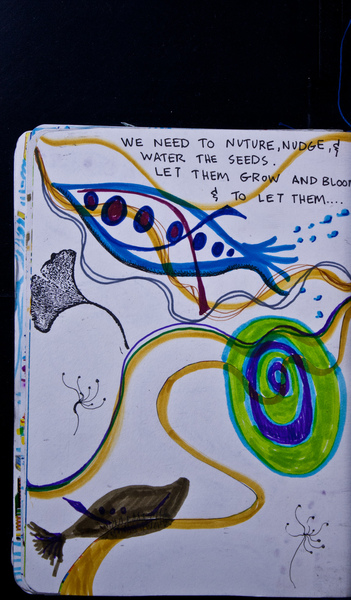 WE NEED TO NUTURE, NUDGE, &
WATER THE SEEDS.
LET THEM GROW AND BLOOM
& TO LET THEM....